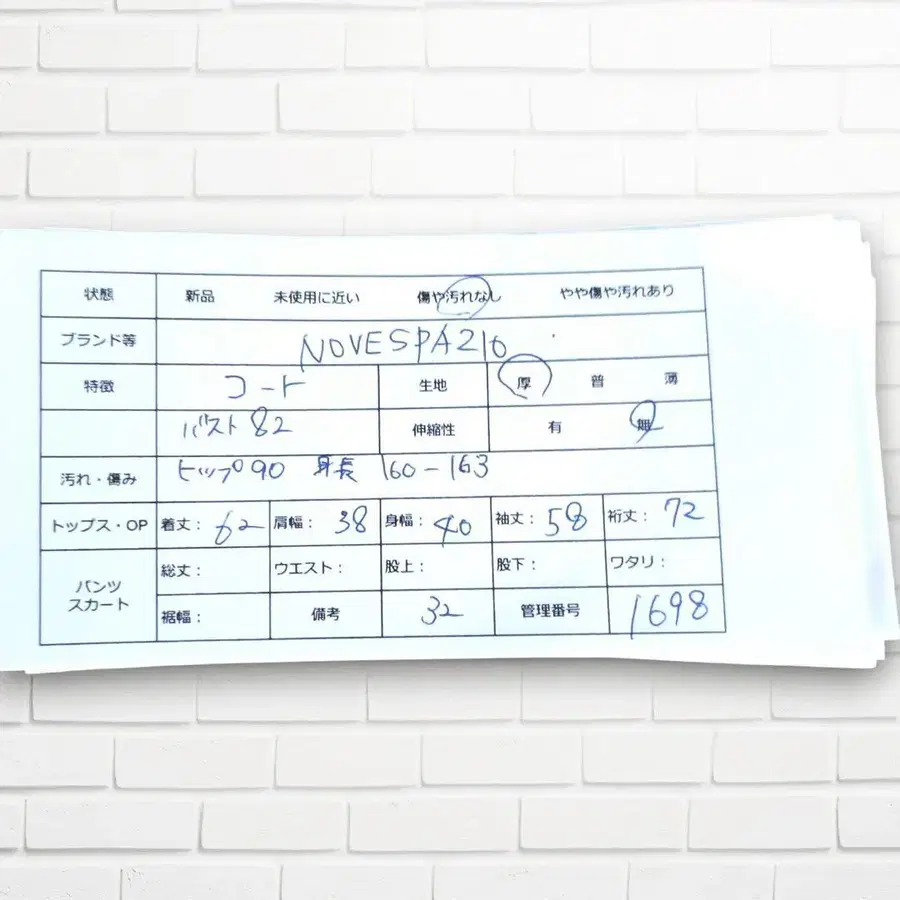 状態 新品 未使用に近い 傷や汚れなし やや傷や汚れあり
ブランド等 NOVESPAZIO
特徴 コート 生地 厚 普 薄
バスト 82 伸縮性 有 無
汚れ・傷み ヒップ90 身長 160-163
トップス・OP 着丈: 62 肩幅: 38 身幅: 40 袖丈: 58 裄丈: 72
パンツ スカート 総丈: ウエスト: 股上: 股下: ワタリ:
裾幅: 備考 32 管理番号 1698